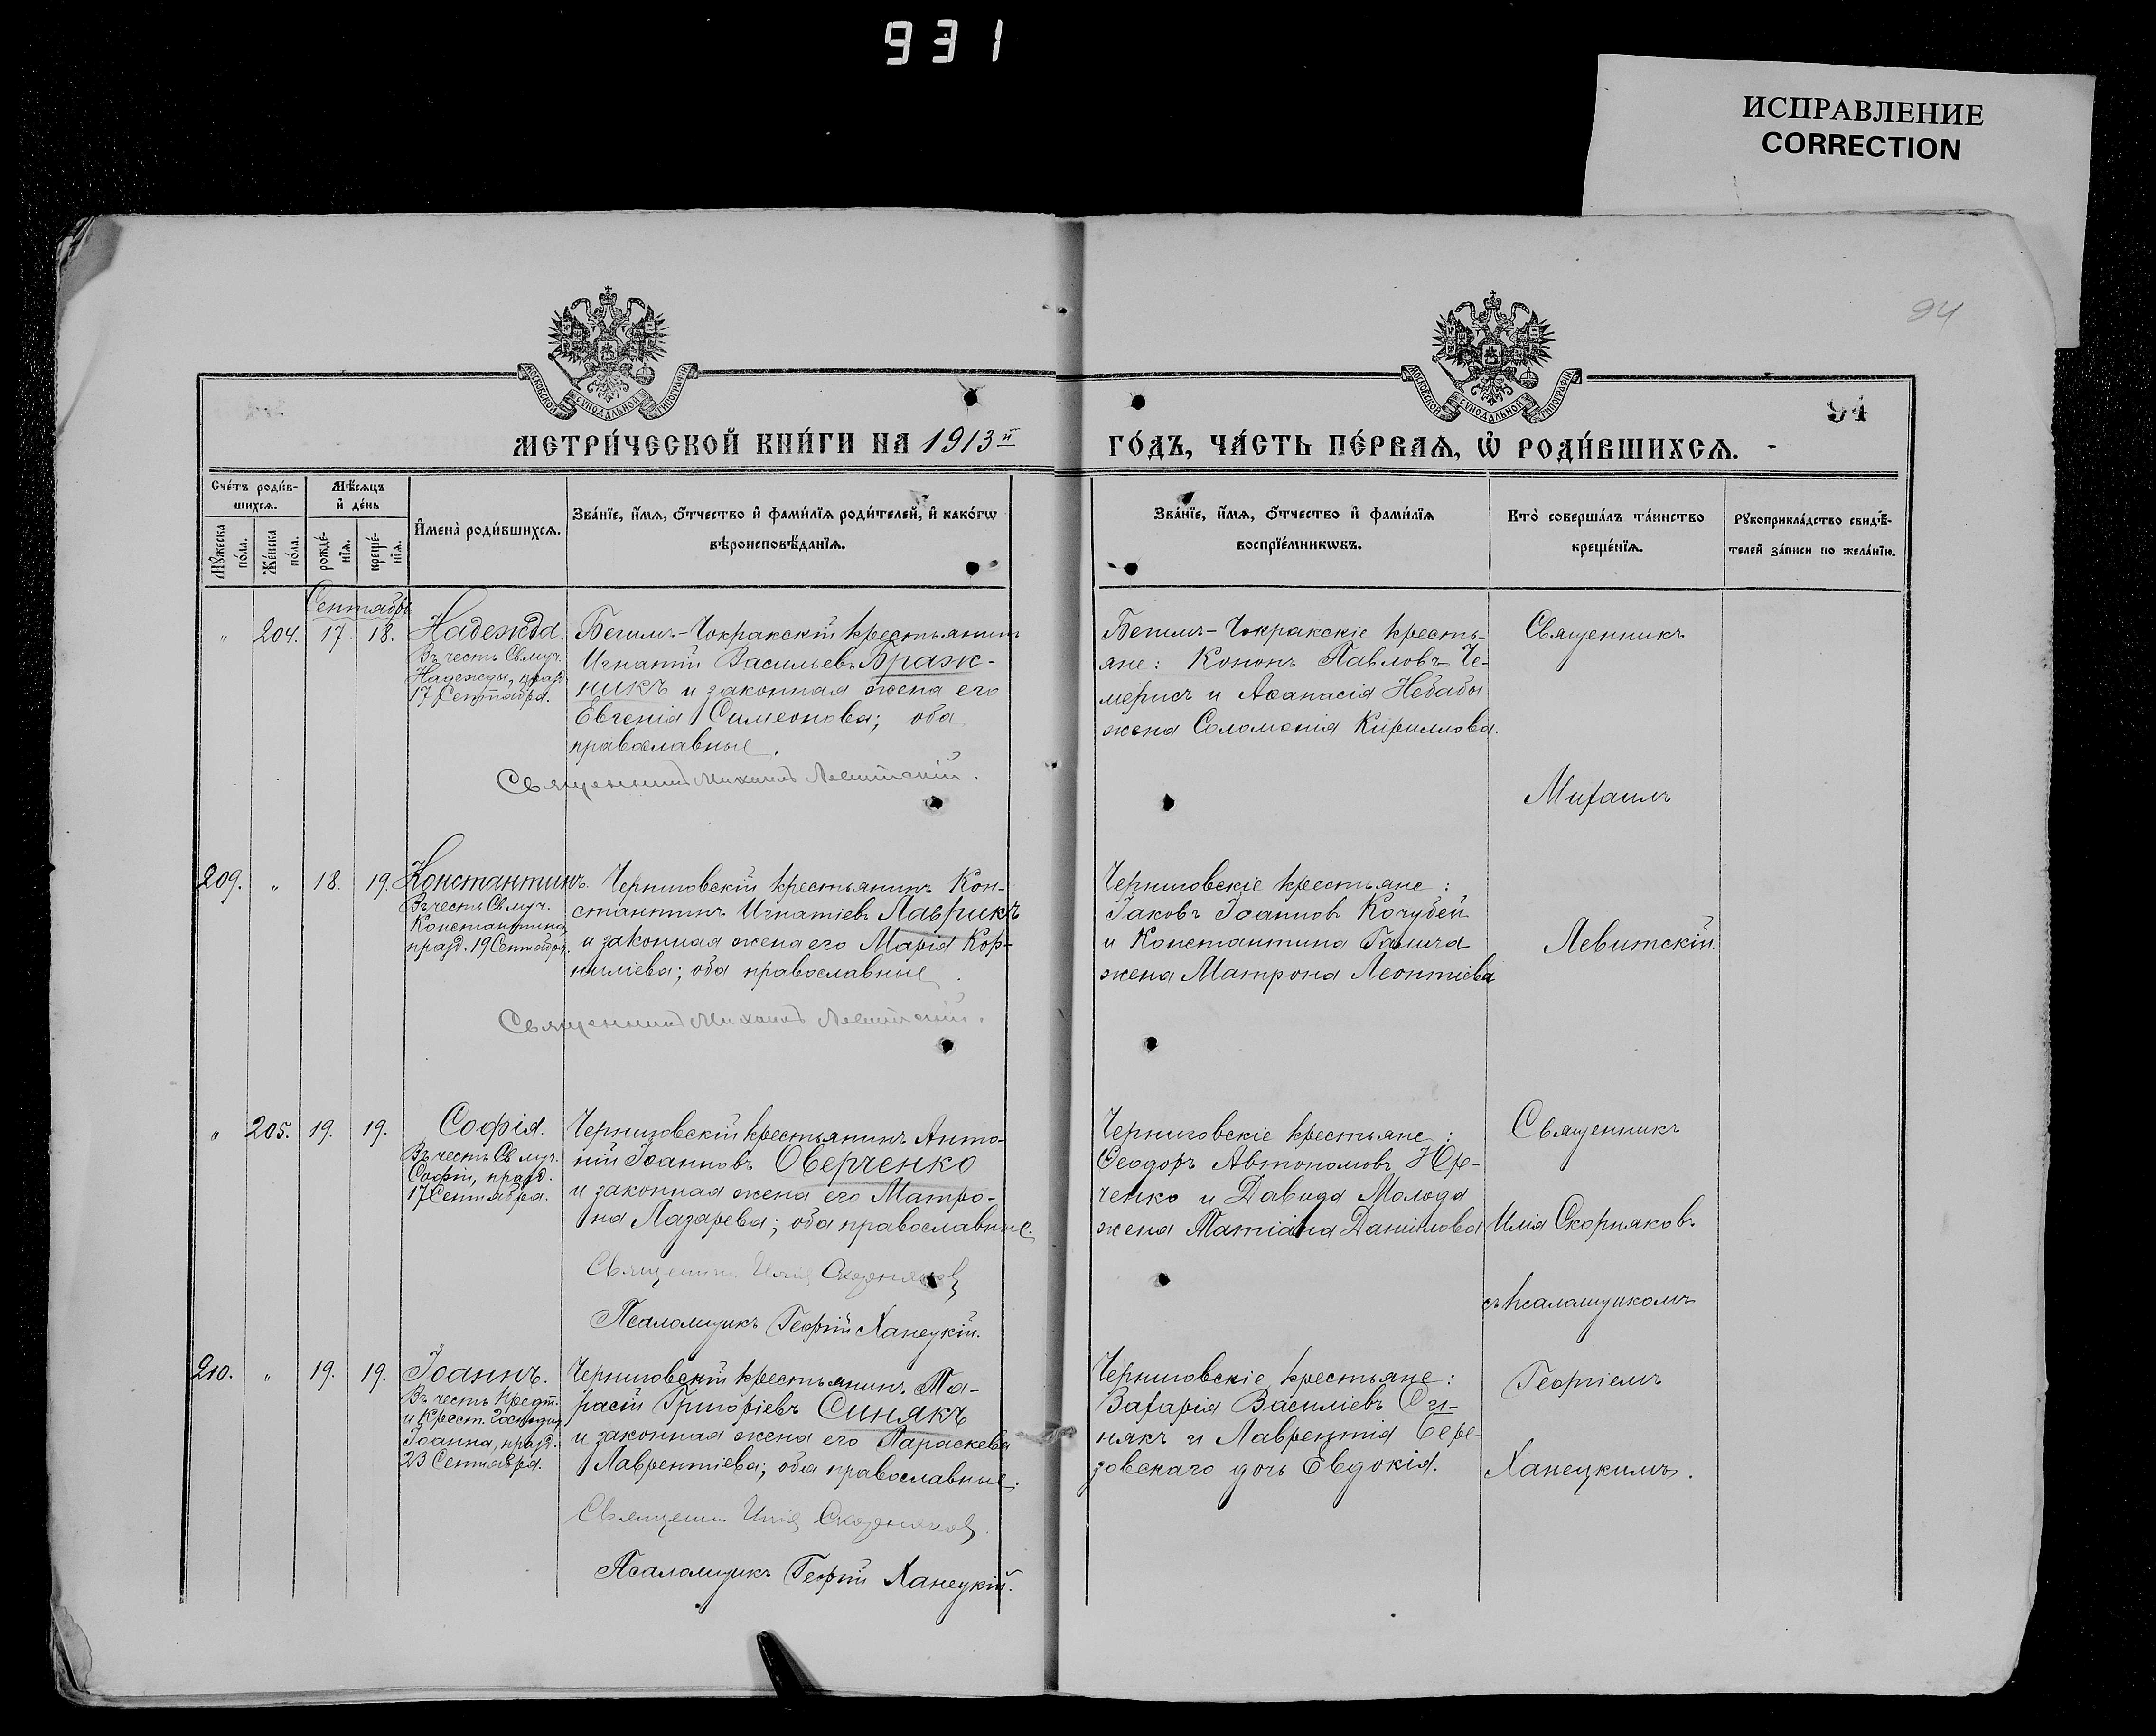 931
ИСПРАВЛЕНИЕ
CORRECTION
94
МОСКОВСКОЙ СѴНОДАЛЬНОЙ ТИПОГРАФІИ
МОСКОВСКОЙ СѴНОДАЛЬНОЙ ТИПОГРАФІИ
94
МЕТРИ́ЧЕСКОЙ КНИ́ГИ НА 1913й
ГО́ДЪ, ЧА́СТЬ ПЕ́РВАѦ, Ѡ҆ РОДИ́ВШИХСѦ.
Сче́тъ роди́в-
шихсѧ.
Мѣ́сѧцъ
и҆ де́нь
Мꙋ́жеска
по́ла.
Же́нска
по́ла.
рожде́-
нїѧ.
креще́-
нїѧ.
И҆мена̀ роди́вшихсѧ.
Зва́нїе, и҆́мѧ, ѻ҆́тчество и҆ фами́лїѧ роди́телей, и҆ како́гѡ
вѣроисповѣ́данїѧ.
Зва́нїе, и҆́мѧ, ѻ҆́тчество и҆ фами́лїѧ
воспрїе́мникѡвъ.
Кто̀ соверша́лъ та́инство
креще́нїѧ.
Рꙋкоприкла́дство свидѣ́-
телей за́писи по жела́нїю.
Сентябрь
" 204. 17. 18. Надежда.
Въ честь Св. муч.
Надежды, празд.
17 Сентября.
Бегимъ-Чокракскій крестьянинъ
Игнатій Васильевъ Браж-
никъ и законная жена его
Евгенія Симеонова; оба
православные.
Священникъ Михаилъ Левитскій.
Бегимъ-Чокракскіе кресть-
яне: Кононъ Павловъ Че-
мерисъ и Аѳанасія Небабы
жена Соломонія Кириллова.
Священникъ
Михаилъ
209. " 18. 19. Константинъ.
Въ честь Св. муч.
Константина,
празд. 19 Сентября.
Черниговскій крестьянинъ Кон-
стантинъ Игнатіевъ Лаврикъ
и законная жена его Марія Кор-
ниліева; оба православные.
Священникъ Михаилъ Левитскій.
Черниговскіе крестьяне:
Іаковъ Іоанновъ Кочубей
и Константина Галича
жена Матрона Леонтіева
Левитскій.
" 205. 19. 19. Софія.
Въ честь Св. муч.
Софіи, празд.
17 Сентября.
Черниговскій крестьянинъ Анто-
ній Іоанновъ Оверченко
и законная жена его Матро-
на Лазарева; оба православные.
Священникъ Илія Скорняковъ
Псаломщикъ Георгій Ханецкій.
Черниговскіе крестьяне:
Ѳеодоръ Автономовъ Юр-
ченко и Давида Молода
жена Татіана Даніилова
Священникъ
Илія Скорняковъ
съ псаломщикомъ
210. " 19. 19. Іоаннъ.
Въ честь Предт.
и Крест. Господня
Іоанна, празд.
23 Сентября.
Черниговскій крестьянинъ Та-
расій Григоріевъ Синякъ
и законная жена его Параскева
Лаврентіева; оба православные.
Священникъ Илія Скорняковъ.
Псаломщикъ Георгій Ханецкій.
Черниговскіе крестьяне:
Захарія Василіевъ Си-
някъ и Лаврентія Бере-
зовскаго дочь Евдокія.
Георгіемъ
Ханецкимъ.